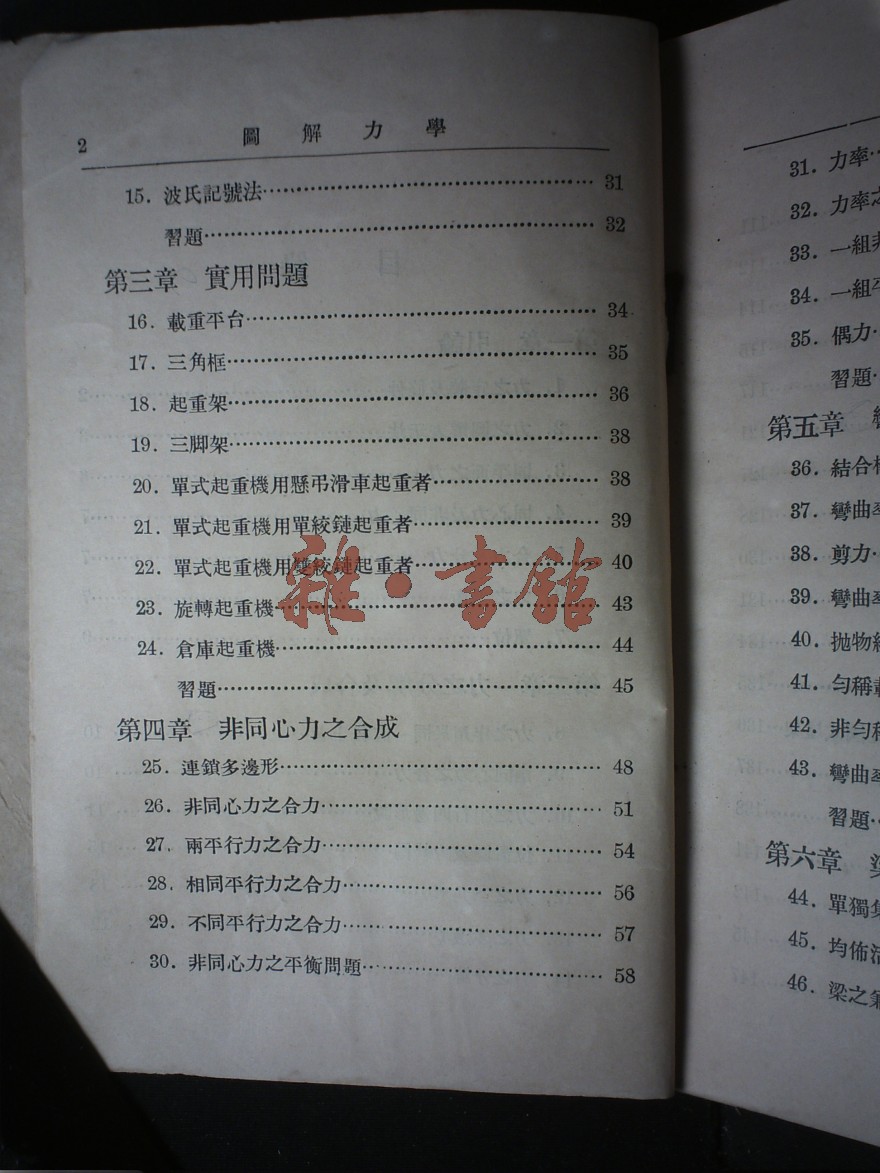 2 圖解力學
15. 波氏記號法 31
習題 32
第三章 實用問題
16. 載重平台 34
17. 三角框 35
18. 起重架 36
19. 三脚架 38
20. 單式起重機用懸弔滑車起重者 38
21. 單式起重機用單絞鏈起重者 39
22. 單式起重機用雙絞鏈起重者 40
23. 旋轉起重機 43
24. 倉庫起重機 44
習題 45
第四章 非同心力之合成
25. 連鎖多邊形 48
26. 非同心力之合力 51
27. 兩平行力之合力 54
28. 相同平行力之合力 56
29. 不同平行力之合力 57
30. 非同心力之平衡問題 58
雜·書館
31. 力率
32. 力率之
33. 一組非
34. 一組平
35. 偶力
習題
第五章
36. 結合
37. 彎曲率
38. 剪力
39. 彎曲率
40. 拋物線
41. 勻稱載
42. 非勻稱
43. 彎曲率
習題
第六章 梁
44. 單獨集
45. 均佈活
46. 梁之兼